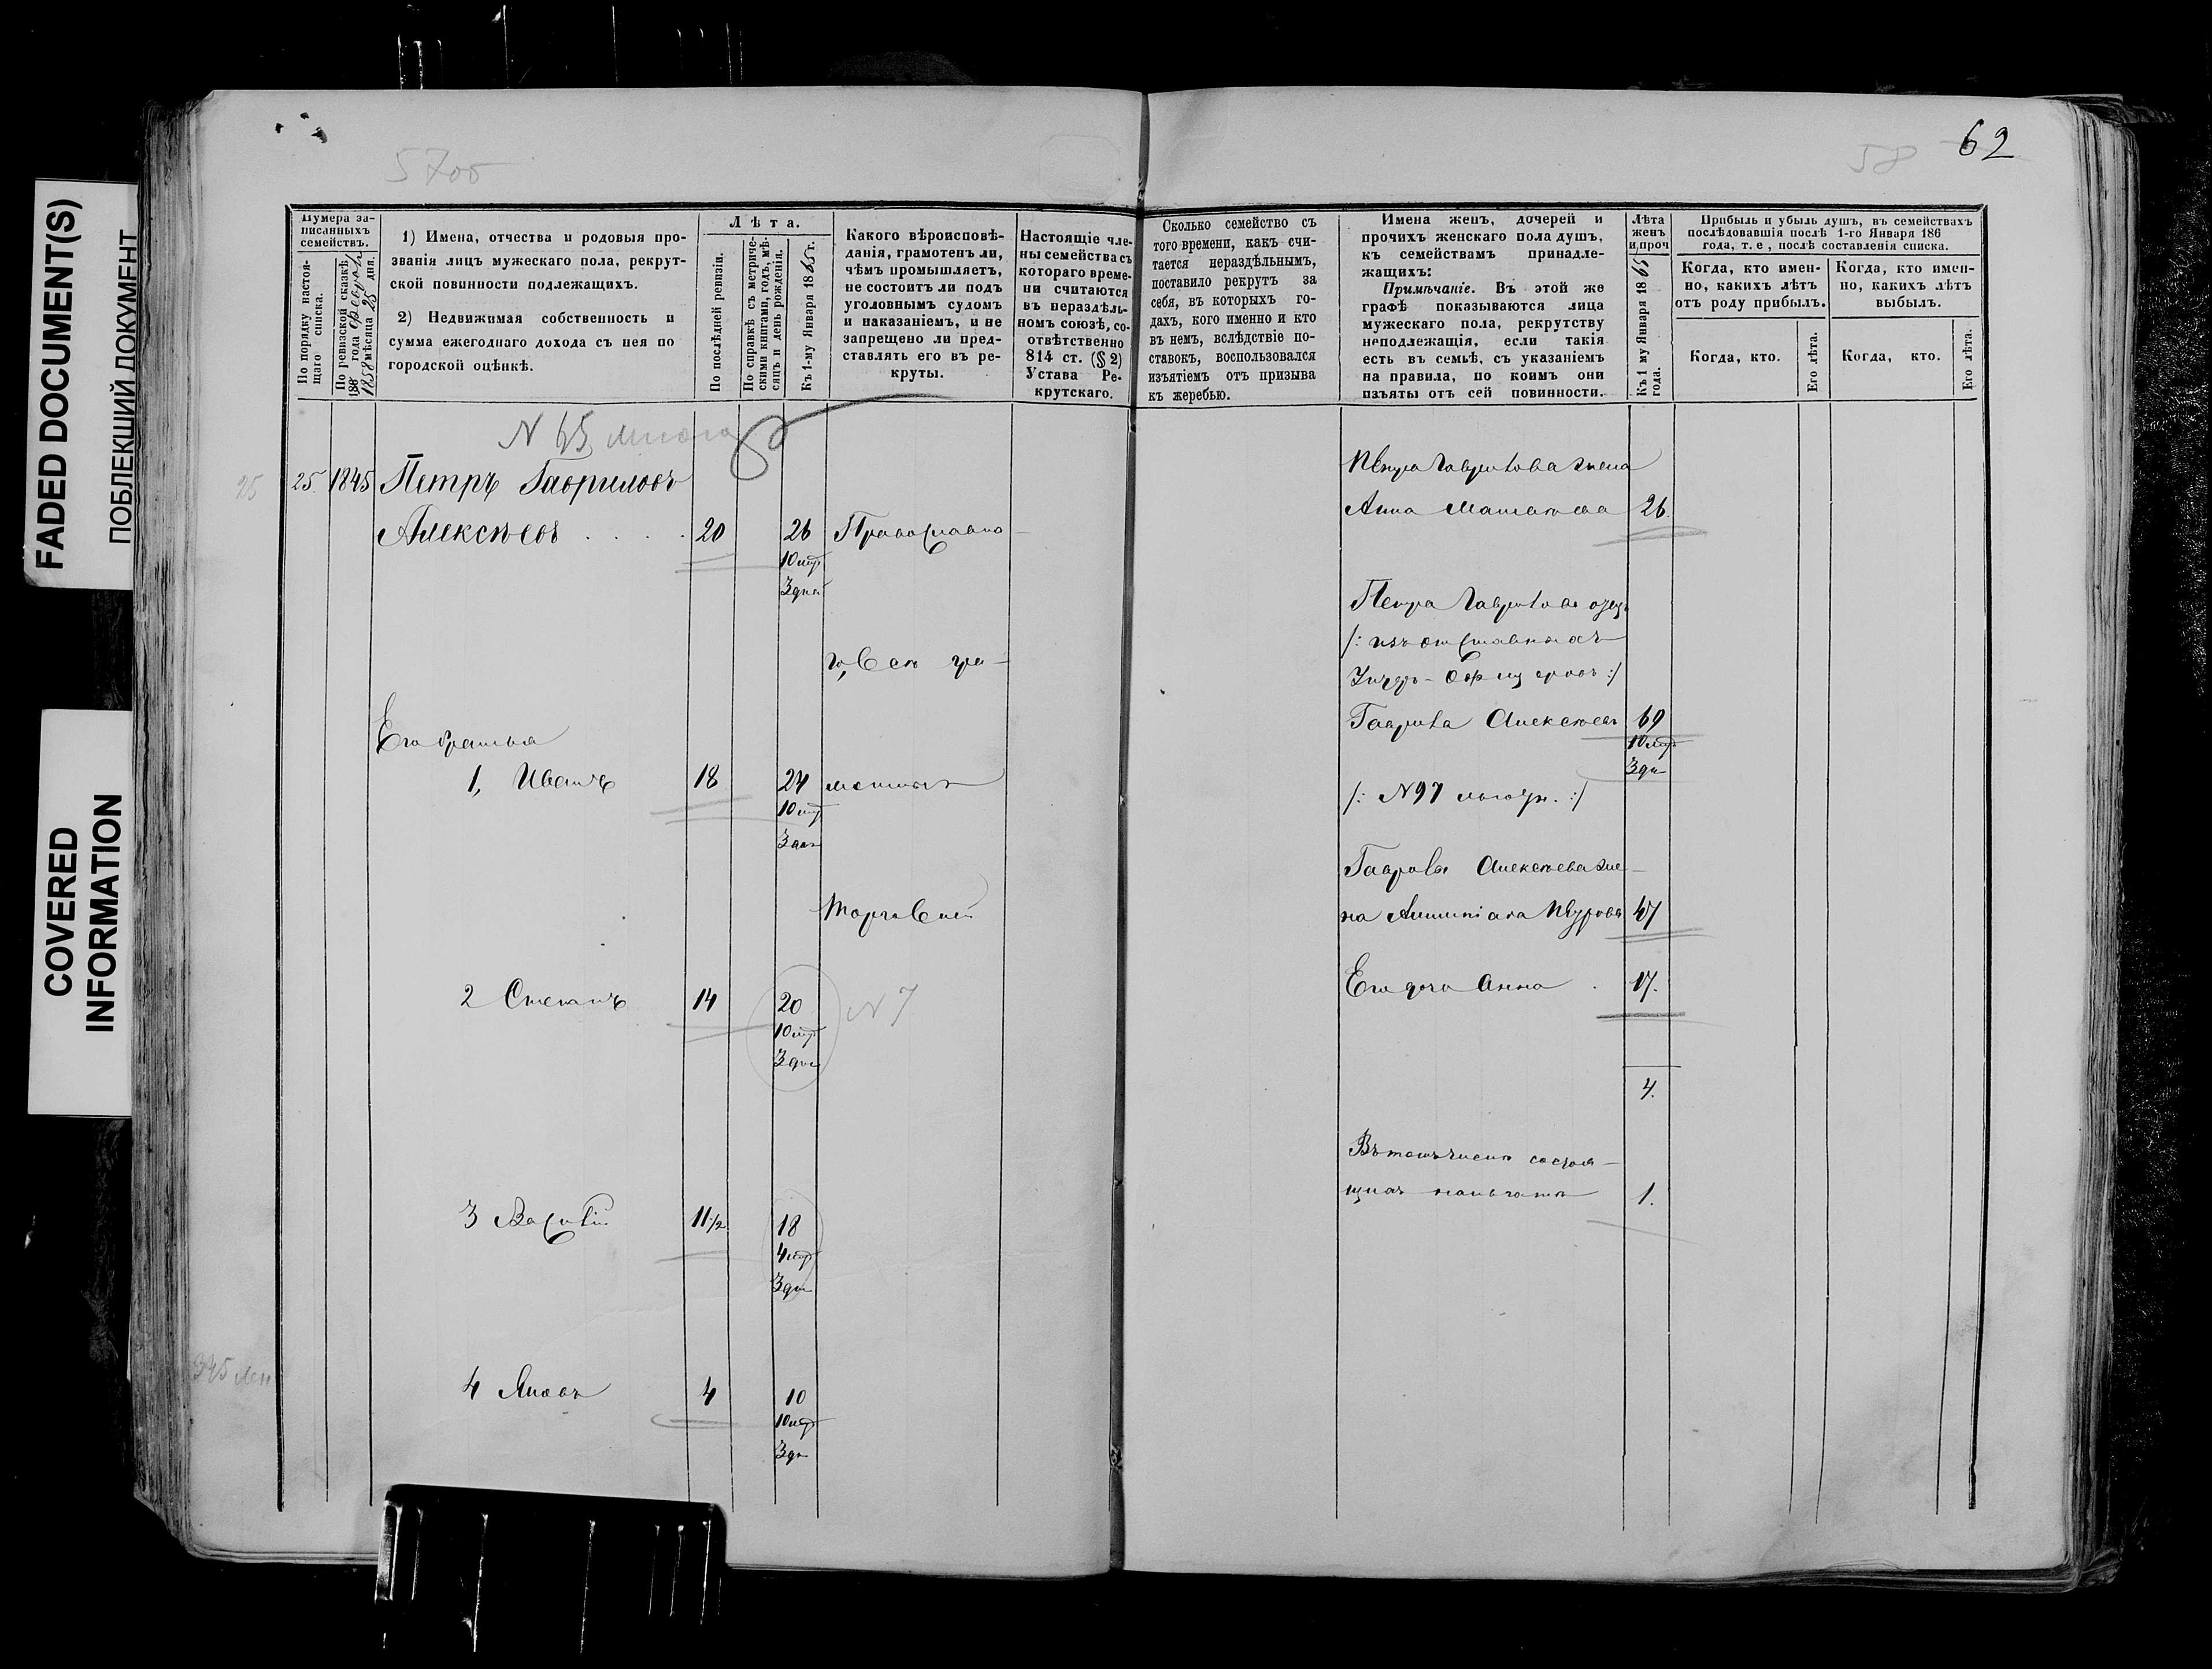 FADED DOCUMENT(S)
ПОБЛЕКШИЙ ДОКУМЕНТ
COVERED
INFORMATION
5700
58
62
Нумера записанныхъ семействъ.
По порядку настоящаго списка.
По ревизской сказкѣ
1858
мѣсяца 25 дня.
1) Имена, отчества и родовыя про-
званія лицъ мужескаго пола, рекрут-
ской повинности подлежащихъ.
2) Недвижимая собственность и
сумма ежегоднаго дохода съ нея по
городской оцѣнкѣ.
Лѣта.
По послѣдней ревизіи.
По справкѣ съ метриче-
скими книгами, годъ, мѣ-
сяцъ и день рожденія.
Къ 1-му Января 1865 г.
Какого вѣроисповѣ-
данія, грамотенъ ли,
чѣмъ промышляетъ,
не состоитъ ли подъ
уголовнымъ судомъ
и наказаніемъ, и не
запрещено ли пред-
ставлять его въ ре-
круты.
Настоящіе чле-
ны семейства съ
котораго време-
ни считаются
въ нераздѣль-
номъ союзѣ, со-
отвѣтственно
814 ст. (§ 2)
Устава Ре-
крутскаго.
Сколько семейство съ
того времени, какъ счи-
тается нераздѣльнымъ,
поставило рекрутъ за
себя, въ которыхъ го-
дахъ, кого именно и кто
въ немъ, вслѣдствіе по-
ставокъ, воспользовался
изъятіемъ отъ призыва
къ жеребью.
Имена женъ, дочерей и
прочихъ женскаго пола душъ,
къ семействамъ принадле-
жащихъ:
Примѣчаніе. Въ этой же
графѣ показываются лица
мужескаго пола, рекрутству
неподлежащія, если такія
есть въ семьѣ, съ указаніемъ
на правила, по коимъ они
изъяты отъ сей повинности.
Лѣта
женъ
и проч
Къ 1 му Января 1865
года.
Прибыль и убыль душъ, въ семействахъ
послѣдовавшія послѣ 1-го Января 186
года, т. е, послѣ составленія списка.
Когда, кто имен-
но, какихъ лѣтъ
отъ роду прибылъ.
Когда, кто имен-
но, какихъ лѣтъ
выбылъ.
Когда, кто.
Его лѣта.
Когда, кто.
Его лѣта.
N 65
25
25. 1845 Петръ Гавриловъ
Алексѣевъ 20 26 Православно
10 мѣс
3 дня
го, всѣ гра-
Его братья
1, Иванъ 18 24 мотны
10 мѣс
3 дня
Торговлей
2 Степанъ 14 20 N 7
10 мѣс
3 дня
3 Василій 11 1/2 18
4 мѣс
3 дня
345
4 Яковъ 4 10
10 мѣс
3 дн
Петра Гаврилова жена
Анна Матвѣева 26.
Петра Гаврилова отецъ
/: изъ отставныхъ
Унтеръ-Офицеровъ :/
Гаврила Алексѣевъ 69
10 мѣс
3 дн
/: N 97 :/
Гаврилы Алексѣева же-
на Петрова 47
Его дочь Анна 17.
4.
Въ томъ числѣ состоя-
щихъ 1.